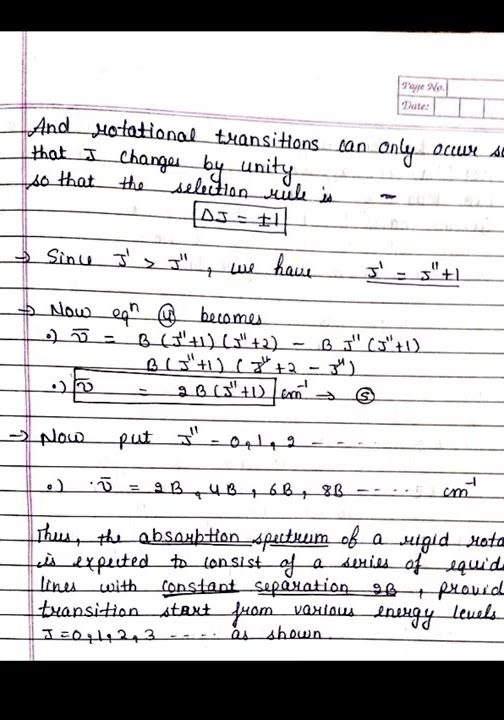 Page No.
Date:
And rotational transitions can only occur
that J changes by unity
so that the selection rule is -
ΔJ = ±1
→ Since J' > J'', we have J' = J''+1
→ Now eqⁿ ④ becomes
•) ν̄ = B (J''+1) (J''+2) - B J'' (J''+1)
B (J''+1) (J''+2 - J'')
•) ν̄ = 2B (J''+1) cm⁻¹ → ⑤
→ Now put J'' = 0,1,2 - - - - -
•) ν̄ = 2B, 4B, 6B, 8B - - - - - cm⁻¹
Thus, the absorption spectrum of a rigid rota
is expected to consist of a series of equid
lines with constant separation 2B, provid
transition start from various energy levels
J=0,1,2,3 - - - - - as shown